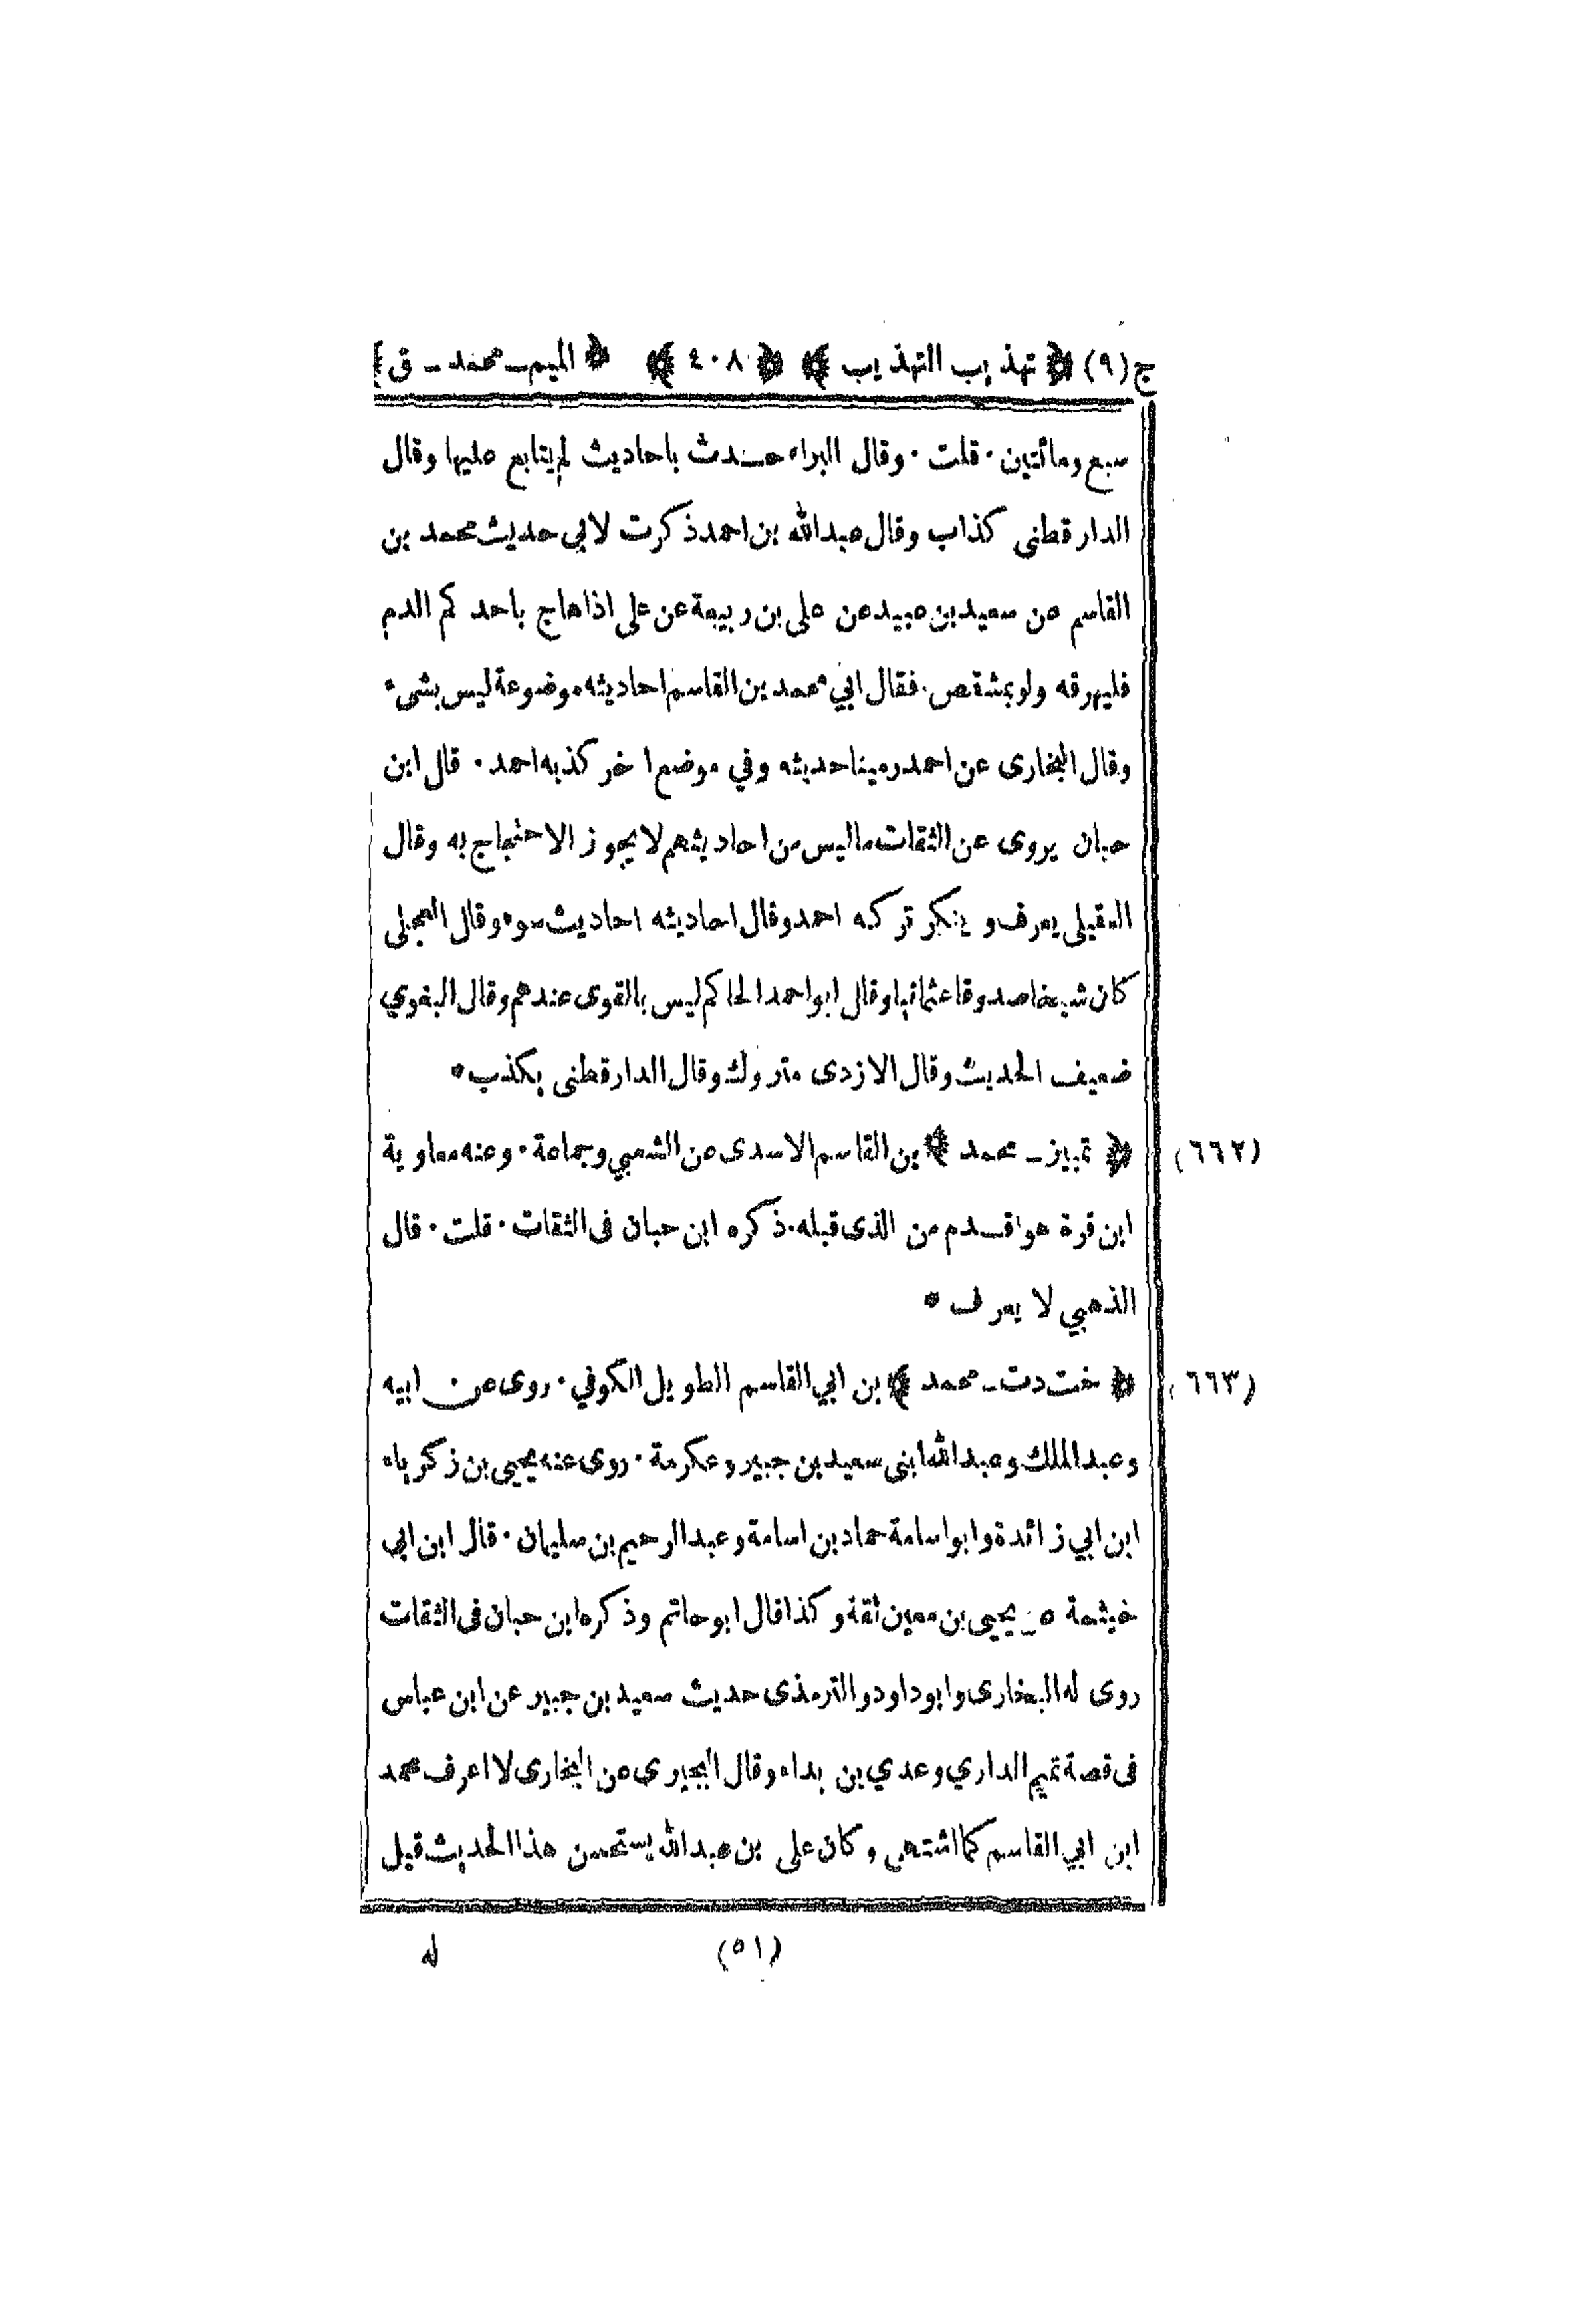 ج(٩) ﴿ تهذيب التهذيب ﴾ ﴿ ٤٠٨ ﴾ ﴿ الميم ـ محمد ـ ق ]
سبع ومائتين ٠ قلت ٠ وقال البراء حدث باحاديث لم يتابع عليها وقال
الدار قطنى كذاب وقال عبدالله بن احمد ذكرت لابي حديث محمد بن
القاسم عن سعيد بن عبيد عن على بن ربيعة عن على اذا هاج باحد كم الدم
فليهرقه ولو بمشقص ٠ فقال ابي محمد بن القاسم احاديثه موضوعة ليس بشىء
وقال البخارى عن احمد رمينا حديثه وفي موضع اخر كذبه احمد ٠ قال ابن
حبان يروى عن الثقات ما ليس من احاديثهم لا يجوز الاحتجاج به وقال
العقيلى يعرف و ينكر تركه احمد وقال احاديثه احاديث سوء وقال العجلى
كان شيخا صدوقا عثمانيا وقال ابو احمد الحاكم ليس بالقوى عندهم وقال البغوي
ضعيف الحديث وقال الازدى متروك وقال الدارقطنى يكذب *
(٦٦٢) ﴿ تمييز ـ محمد ﴾ بن القاسم الاسدى عن الشعبي وجماعة ٠ وعنه معاوية
ابن قرة هو اقدم من الذى قبله ٠ ذكره ابن حبان فى الثقات ٠ قلت ٠ قال
الذهبي لا يعرف *
(٦٦٣) ﴿ خت دت ـ محمد ﴾ بن ابي القاسم الطويل الكوفي ٠ روى عن ابيه
وعبد الملك وعبد الله ابنى سعيد بن جبير وعكرمة ٠ روى عنه يحيى بن زكرياء
ابن ابي زائدة وابو اسامة حماد بن اسامة وعبد الرحيم بن سليمان ٠ قال ابن ابى
خيثمة عن يحيى بن معين ثقة و كذا قال ابو حاتم وذكره ابن حبان فى الثقات
روى له البخارى وابو داود والترمذى حديث سعيد بن جبير عن ابن عباس
فى قصة تميم الداري وعدي بن بداء وقال البجيرى عن البخارى لا اعرف محمد
ابن ابي القاسم كما اشتهى وكان على بن عبد الله يستحسن هذا الحديث قيل
(٥١) له